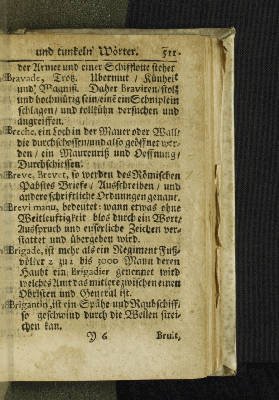 und tunckeln Wörter. 511.
der Armee und einer Schifflotte stehet
Bravade, Trotz. Ubermut / Künheit
und Wagniß. Daher Braviren / stoltz
und hochmütig sein / eine ein Schniplein
schlagen / und tollkühn versuchen und
angreiffen.
Breche, ein Loch in der Mauer oder Wall /
die durchschossen und also geöffnet wer-
den / ein Maurenriß und Oeffnung /
Durchschiessen.
Breve, Brevet, so werden des Römischen
Pabstes Briefe / Ausschreiben / und
andere schriftliche Ordnungen genant.
Brevi manu, bedeutet: wann etwas ohne
Weitleuftigkeit blos durch ein Wort /
Ausspruch und euserliche Zeichen ver-
stattet und übergeben wird.
Brigade, ist mehr als ein Regiment Fuß-
völker 2 zu 1 bis 3000 Mann deren
Haubt ein Brigadier genennet wird
welches Amt das mitlere zwischen einen
Obristen und General ist.
Brigantin, ist ein Spähe und Raubschiff /
so geschwind durch die Wellen strei-
chen kan.
Y 6 Bruit,